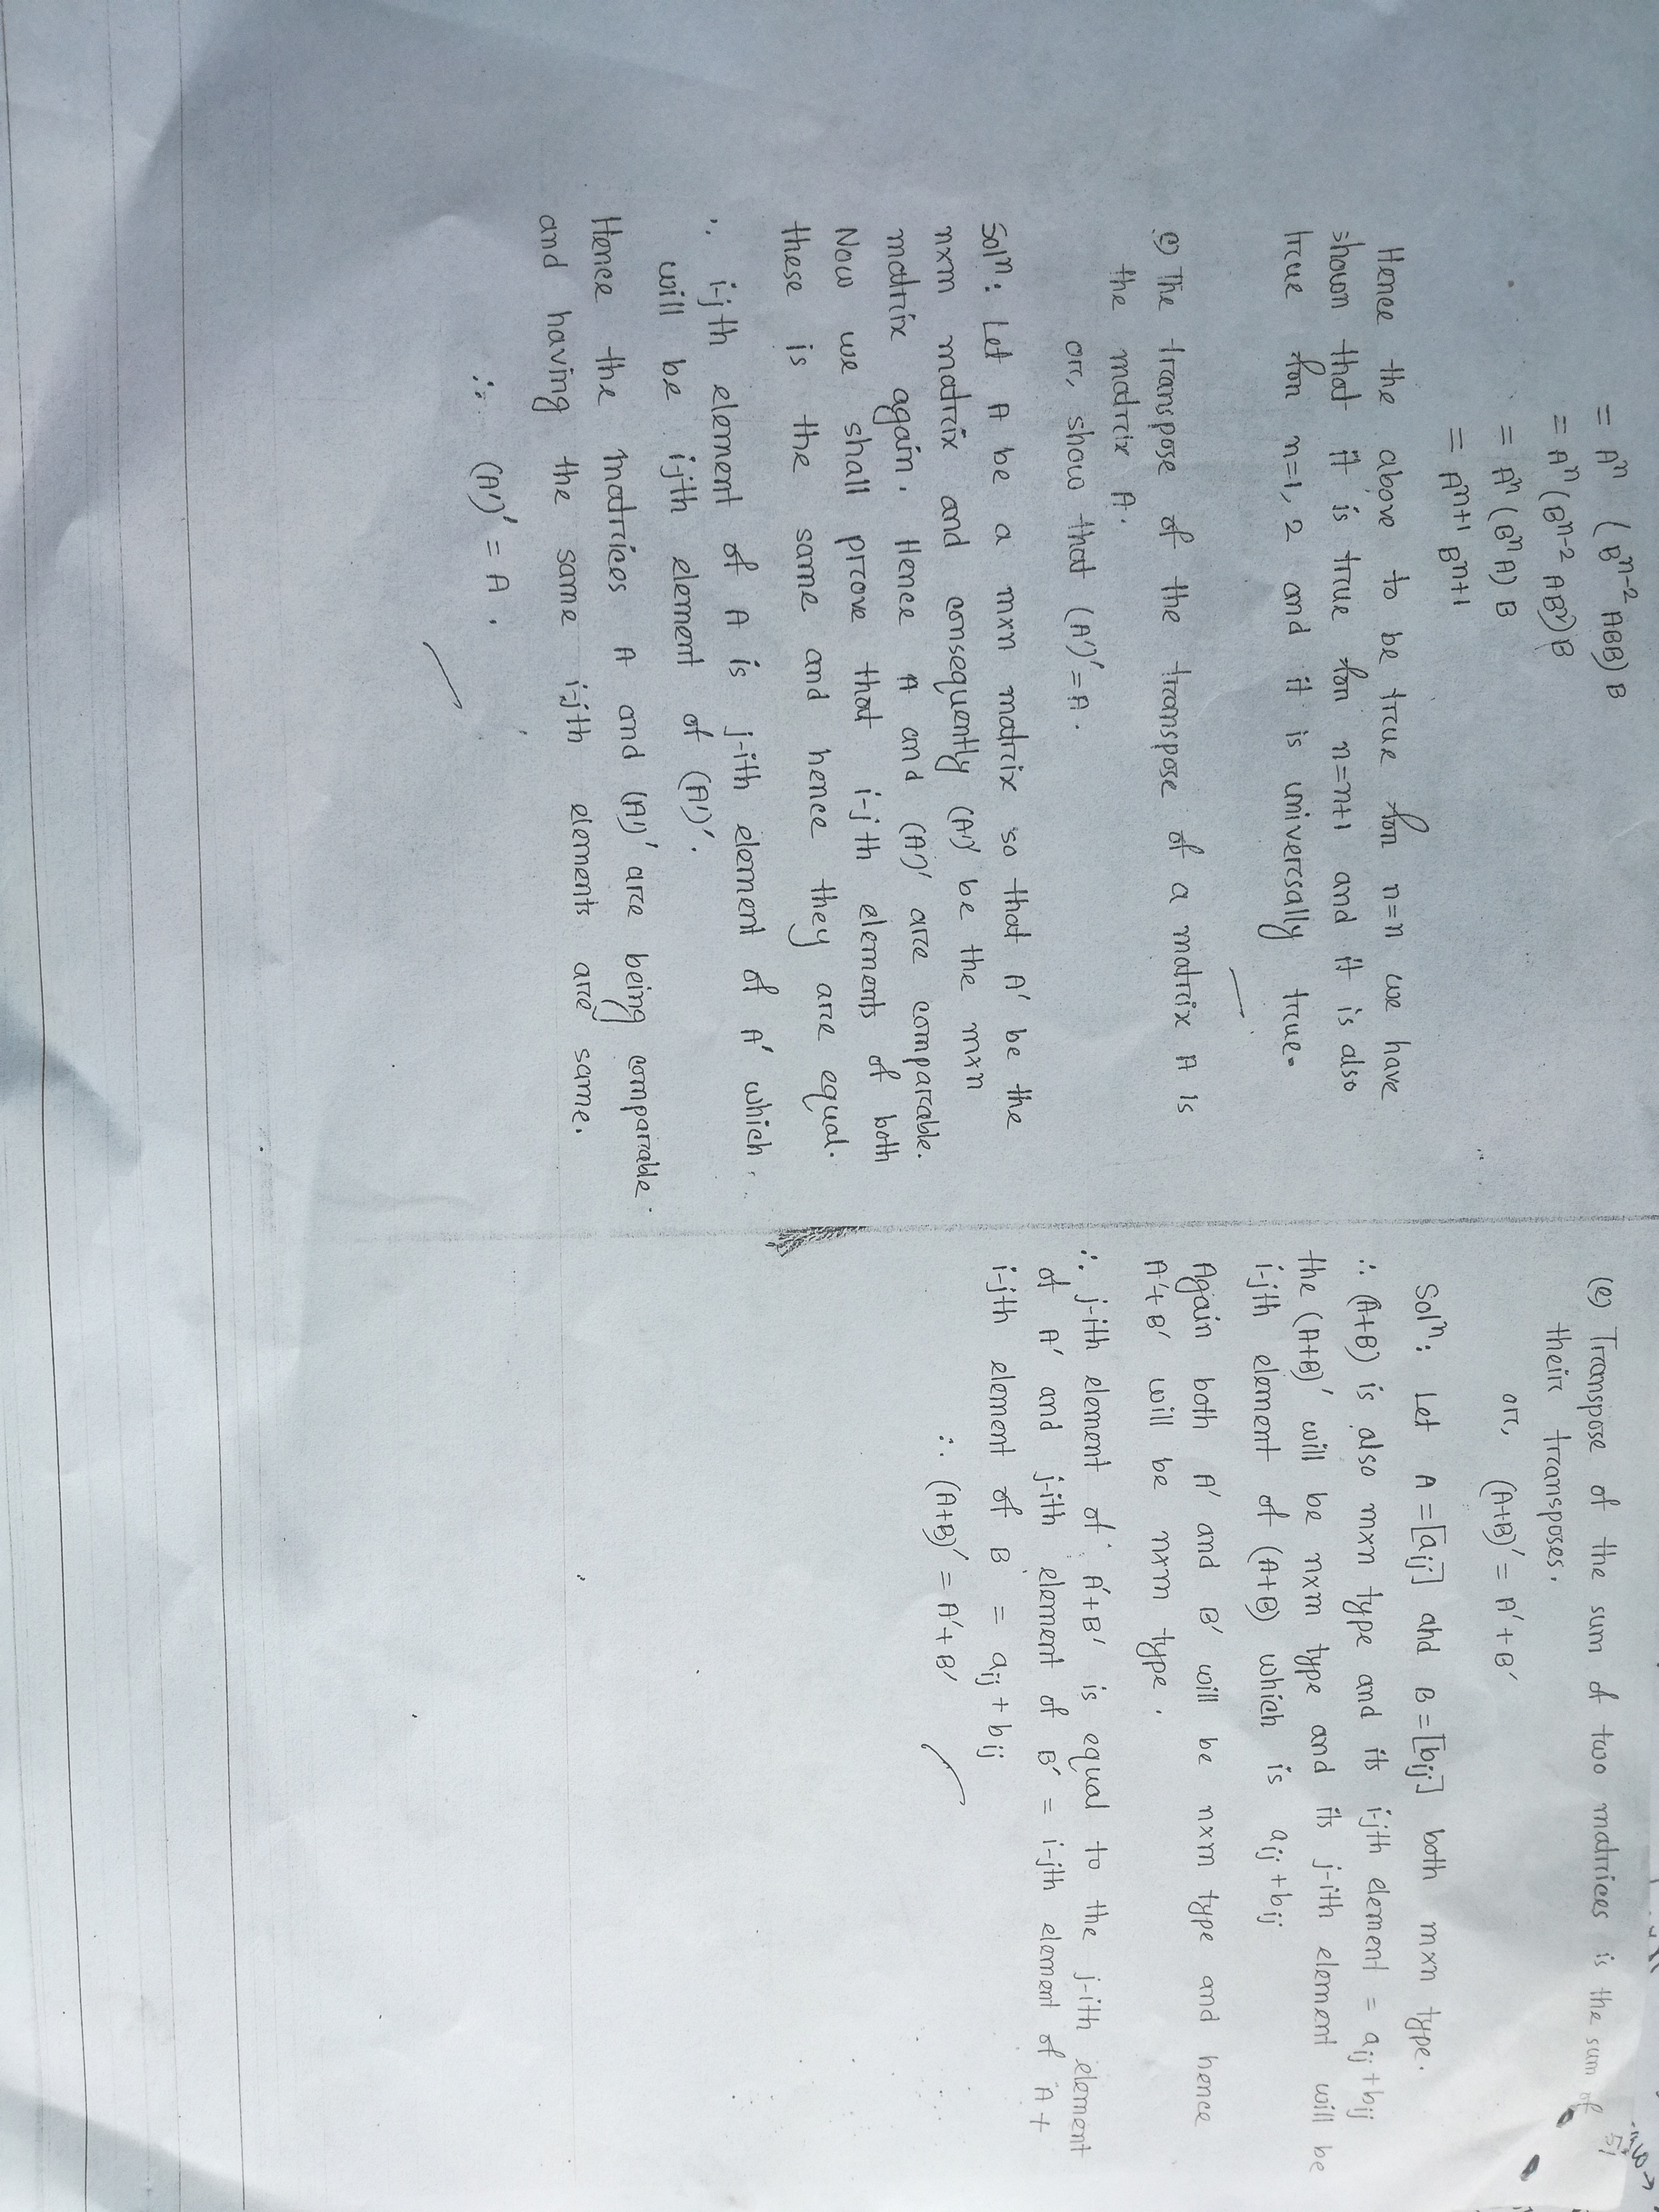 = Aⁿ (Bⁿ⁻² ABB) B
= Aⁿ (Bⁿ⁻² AB²) B
= Aⁿ (Bⁿ A) B
= Aⁿ⁺¹ Bⁿ⁺¹
Hence the above to be true for n=n we have
shown that it is true for n=n+1 and it is also
true for n=1, 2 and it is universally true.
c) The transpose of the transpose of a matrix A is
the matrix A.
or, show that (A')' = A.
Solⁿ: Let A be a m×n matrix so that A' be the
n×m matrix and consequently (A')' be the m×n
matrix again. Hence A and (A')' are comparable.
Now we shall prove that i-jth elements of both
these is the same and hence they are equal.
∴ i-jth element of A is j-ith element of A' which
will be i-jth element of (A')'.
Hence the matrices A and (A')' are being comparable
and having the same i-jth elements are same.
∴ (A')' = A.
(e) Transpose of the sum of two matrices is the sum of
their transposes.
or, (A+B)' = A' + B'
Solⁿ: Let A = [aij] and B = [bij] both m×n type.
∴ (A+B) is also m×n type and its i-jth element = aij + bij
the (A+B)' will be n×m type and its j-ith element will be
i-jth element of (A+B) which is aij + bij
Again both A' and B' will be n×m type and hence
A' + B' will be n×m type.
∴ j-ith element of A' + B' is equal to the j-ith element
of A' and j-ith element of B' = i-jth element of A +
i-jth element of B = aij + bij
∴ (A+B)' = A' + B'